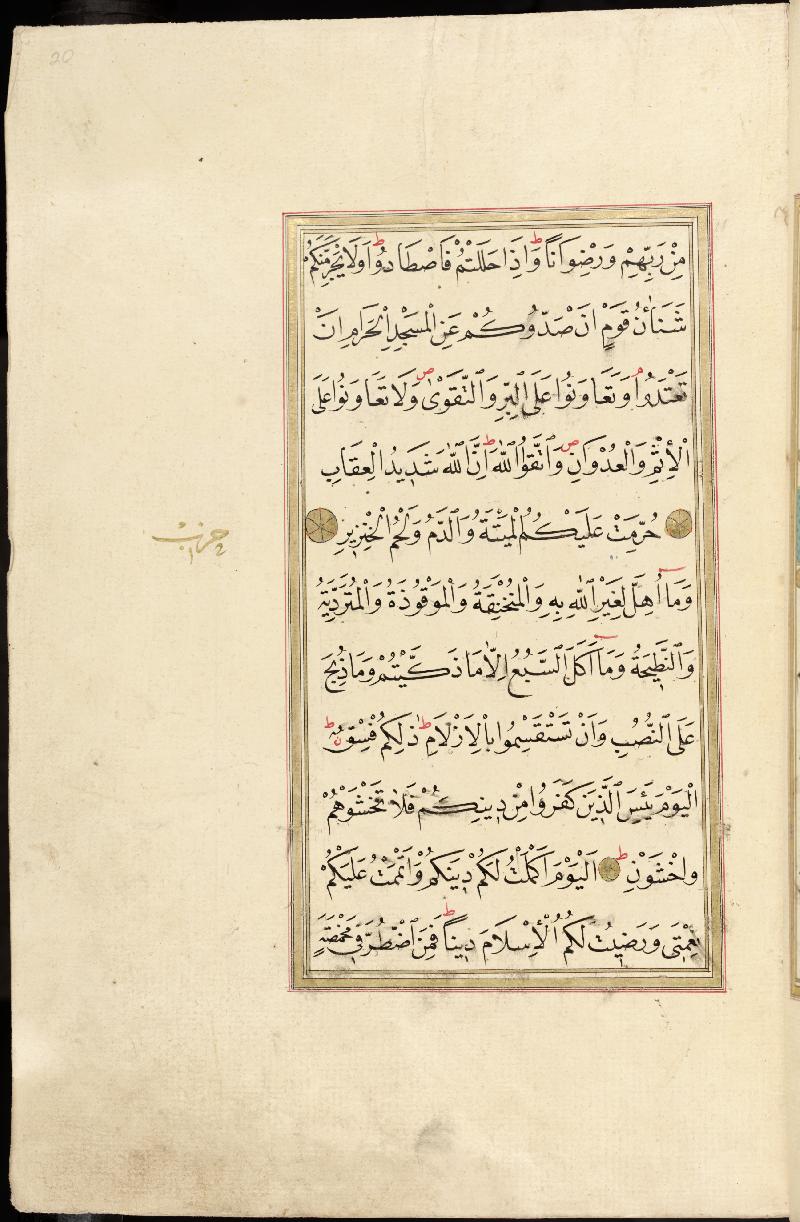 20
مِنْ رَبِّهِمْ وَرِضْوَانًا ط وَاِذَا حَلَلْتُمْ فَاصْطَادُوا ط وَلَا يَجْرِمَنَّكُمْ
شَنَاٰنُ قَوْمٍ اَنْ صَدُّوكُمْ عَنِ الْمَسْجِدِ الْحَرَامِ اَنْ
تَعْتَدُوا م وَتَعَاوَنُوا عَلَى الْبِرِّ وَالتَّقْوٰى ص وَلَا تَعَاوَنُوا عَلَى
الْاِثْمِ وَالْعُدْوَانِ ص وَاتَّقُوا اللّٰهَ ط اِنَّ اللّٰهَ شَدِيدُ الْعِقَابِ
حُرِّمَتْ عَلَيْكُمُ الْمَيْتَةُ وَالدَّمُ وَلَحْمُ الْخِنْزِيرِ
وَمَا اُهِلَّ لِغَيْرِ اللّٰهِ بِهِ وَالْمُنْخَنِقَةُ وَالْمَوْقُوذَةُ وَالْمُتَرَدِّيَةُ
وَالنَّطِيحَةُ وَمَا اَكَلَ السَّبُعُ اِلَّا مَا ذَكَّيْتُمْ وَمَا ذُبِحَ
عَلَى النُّصُبِ وَاَنْ تَسْتَقْسِمُوا بِالْاَزْلَامِ ط ذٰلِكُمْ فِسْقٌ ط
الْيَوْمَ يَئِسَ الَّذِينَ كَفَرُوا مِنْ دِينِكُمْ فَلَا تَخْشَوْهُمْ
وَاخْشَوْنِ ط اَلْيَوْمَ اَكْمَلْتُ لَكُمْ دِينَكُمْ وَاَتْمَمْتُ عَلَيْكُمْ
نِعْمَتِى وَرَضِيتُ لَكُمُ الْاِسْلَامَ دِينًا ط فَمَنِ اضْطُرَّ فِى مَخْمَصَةٍ
حزب